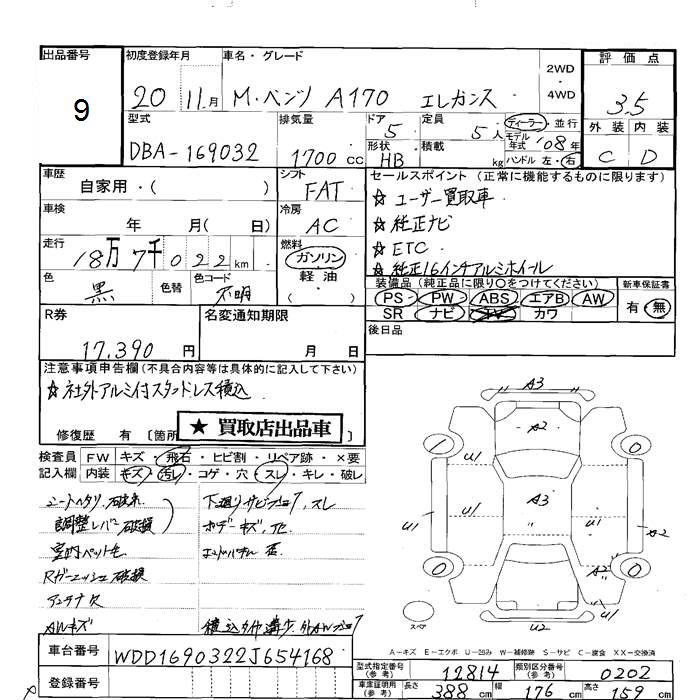 出品番号 初度登録年月 車名・グレード 評価点
9 20 11月 M・ベンツ A170 エレガンス 2WD・4WD 3.5
型式 排気量 ドア 定員 ディーラー・並行 外装 内装
DBA-169032 1700cc 5 5人 モデル年式 '08年 C D
形状 HB 積載 kg ハンドル 左・右
車歴 シフト セールスポイント (正常に機能するものに限ります)
自家用・( ) FAT ☆ ユーザー買取車
車検 冷房 ☆ 純正ナビ
年 月( 日) AC ☆ ETC
走行 燃料 ☆ 純正16インチアルミホイール
18万7千022km ガソリン・軽油・( )
色 色替 色コード 装備品 (純正品に限り○をつけてください) 新車保証書
黒 不明 PS・PW・ABS・エアB・AW 有・無
SR ナビ TV カワ
R券 名変通知期限 後日品
17,390円 月 日
注意事項申告欄 (不具合内容等は具体的に記入して下さい)
☆ 社外アルミ付スタッドレス積込
★ 買取店出品車
修復歴 有 [箇所
検査員 FW キズ・飛石・ヒビ割・リペア跡・×要
記入欄 内装 キズ・汚レ・コゲ・穴・スレ・キレ・破レ
シートヘタリ、破れ 下廻りサビ スレ
調整レバー破損 ボデーキズ
室内ペット毛
破損
アンテナ欠
AWキズ
A3
A2
1 0
U1 U1
A3
U1 U1 U1 A2
A2
0 0
A2 U1
スペア U2
A-キズ E-エクボ U-凹み W-補修跡 S-サビ C-腐食 XX-交換済
車台番号 WDD1690322J654168
型式指定番号 (参考) 12814 類別区分番号 (参考) 0202
登録番号 車庫証明用 (参考) 長さ 388cm 幅 176cm 高さ 159cm